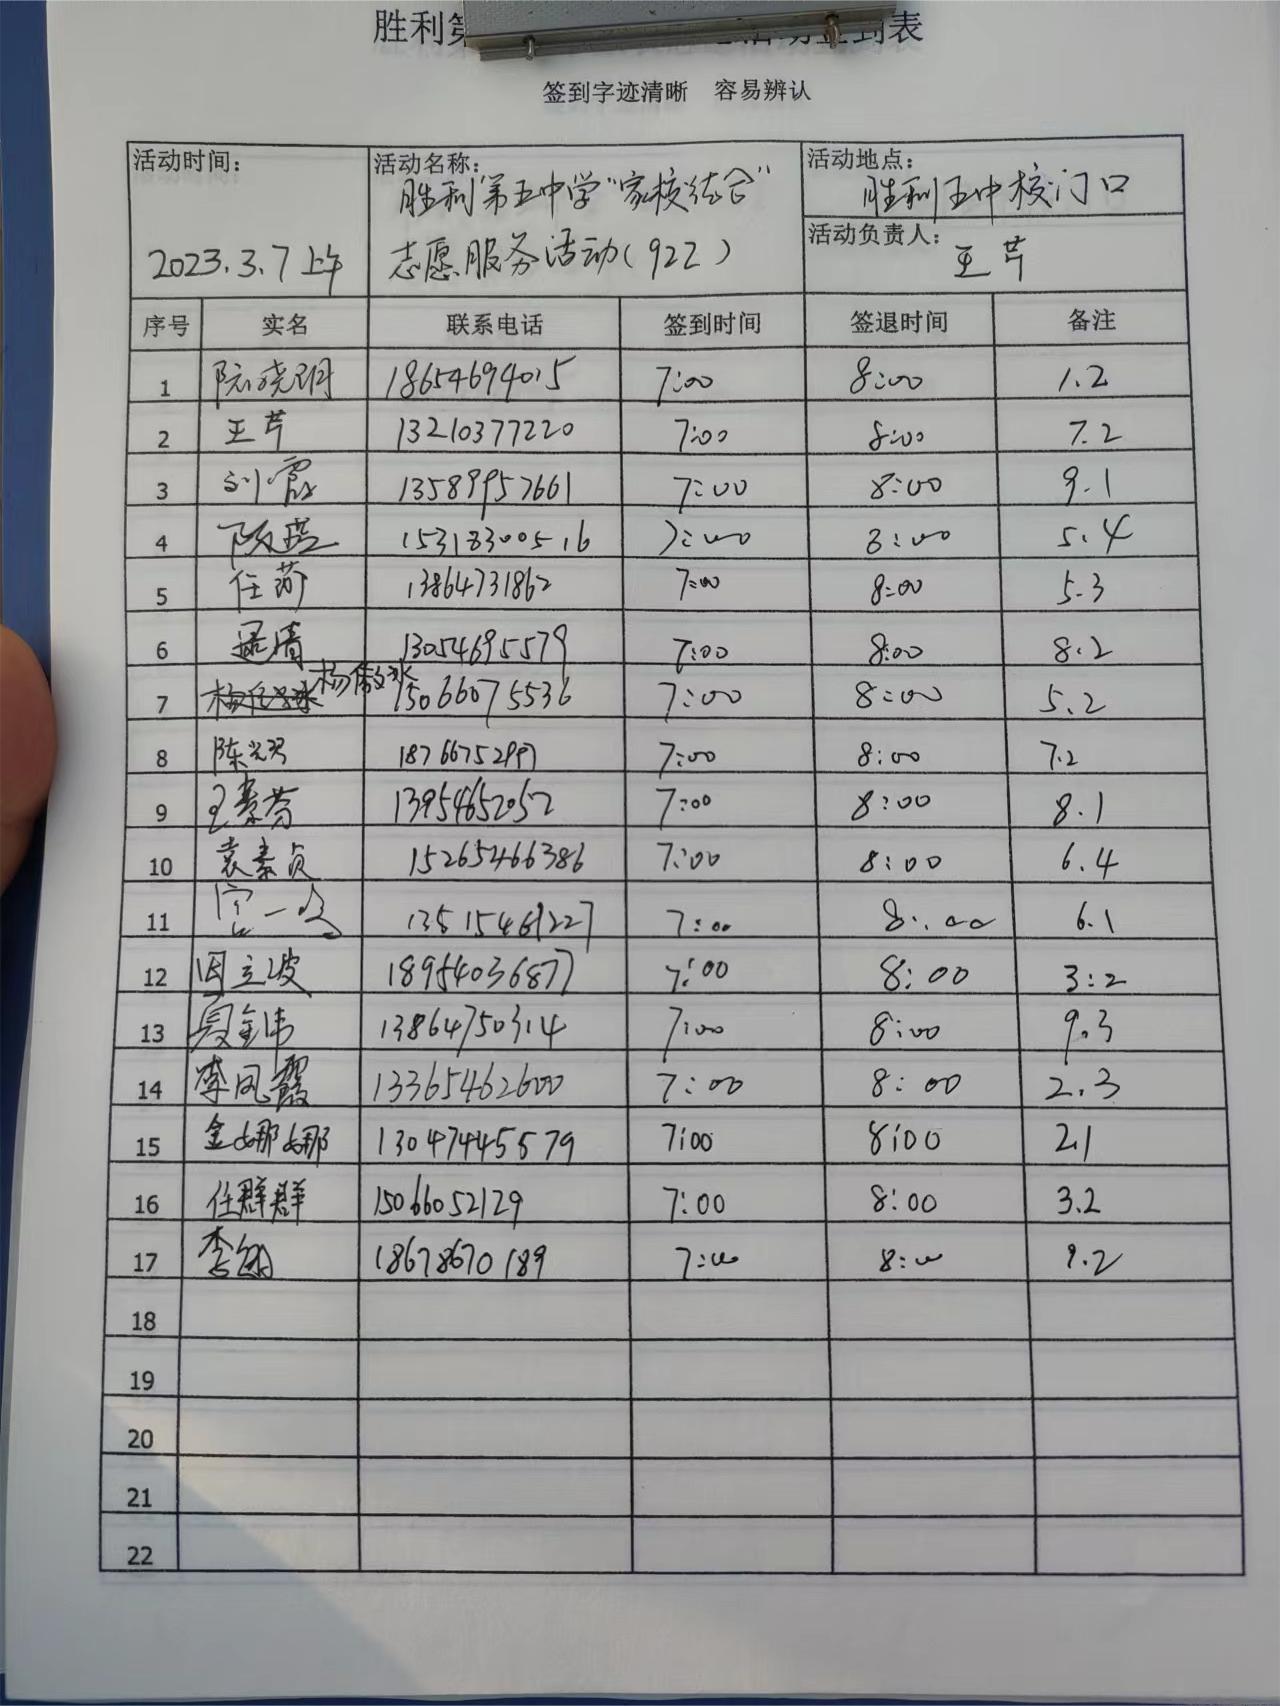 胜利第 活动签到表
签到字迹清晰 容易辨认
活动时间： 活动名称： 活动地点：
胜利第五中学“家校结合” 胜利五中校门口
活动负责人：
2023.3.7上午 志愿服务活动（922） 王芹
序号 实名 联系电话 签到时间 签退时间 备注
1 阮晓明 18654694015 7:00 8:00 1.2
2 王芹 13210377220 7:00 8:00 7.2
3 刘霞 13589957661 7:00 8:00 9.1
4 15318300516 7:00 8:00 5.4
5 任莉 13864731862 7:00 8:00 5.3
6 13054695579 7:00 8:00 8.2
7 杨傲冰 15066075536 7:00 8:00 5.2
8 7:00 8:00 7.2
9 王素芳 13954652052 7:00 8:00 8.1
10 袁素贞 15265466386 7:00 8:00 6.4
11 13515461227 7:00 8:00 6.1
12 周立波 18954036877 7:00 8:00 3:2
13 13864750314 7:00 8:00 9.3
14 李凤霞 13365462600 7:00 8:00 2.3
15 金娜娜 13047445579 7:00 8:00 2.1
16 任群群 15066052129 7:00 8:00 3.2
17 18678670189 7:00 8:00 9.2
18
19
20
21
22